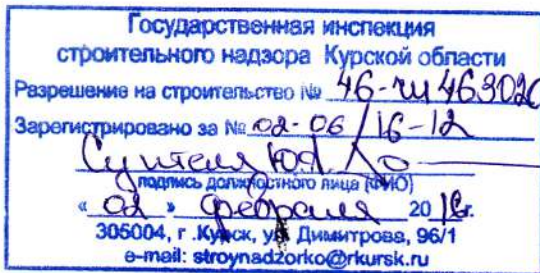 Государственная инспекция
строительного надзора Курской области
Разрешение на строительство № 46-ru 463020
Зарегистрировано за № 02-06/16-12
подпись должностного лица (ФИО)
" 02 " февраля 20 16 г.
305004, г. Курск, ул Димитрова, 96/1
e-mail: stroynadzorko@rkursk.ru